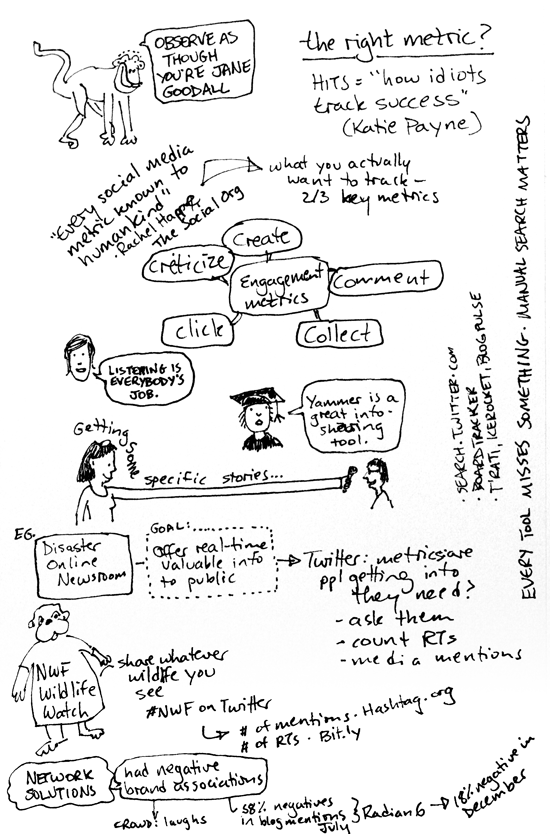 OBSERVE AS
THOUGH
YOU'RE JANE
GOODALL
the right metric?
HITS = "how idiots
track success"
(Katie Payne)
"Every social media
metric known to
humankind"
· Rachel Happe,
The Social Org
what you actually
want to track –
2/3 key metrics
Create
Criticize
Engagement
metrics
Comment
Click
Collect
LISTENING IS
EVERYBODY'S
JOB.
Yammer is a
great info-
sharing
tool.
Getting some
specific stories...
EG.
Disaster
Online
Newsroom
GOAL:
Offer real-time
valuable info
to public
Twitter: metrics: are
ppl getting info
they need?
- ask them
- count RTs
- media mentions
NWF
Wildlife
Watch
share whatever
wildlife you
see
#NWF on Twitter
# of mentions · Hashtag.org
# of RTs · Bit.ly
NETWORK
SOLUTIONS
had negative
brand associations
crowd: laughs
58% negatives
in blog mentions
July
Radian6
18% negative in
December
· SEARCH.TWITTER.COM
· BOARDTRACKER
· T'RATI, ICEROCKET, BLOGPULSE
EVERY TOOL MISSES SOMETHING. MANUAL SEARCH MATTERS